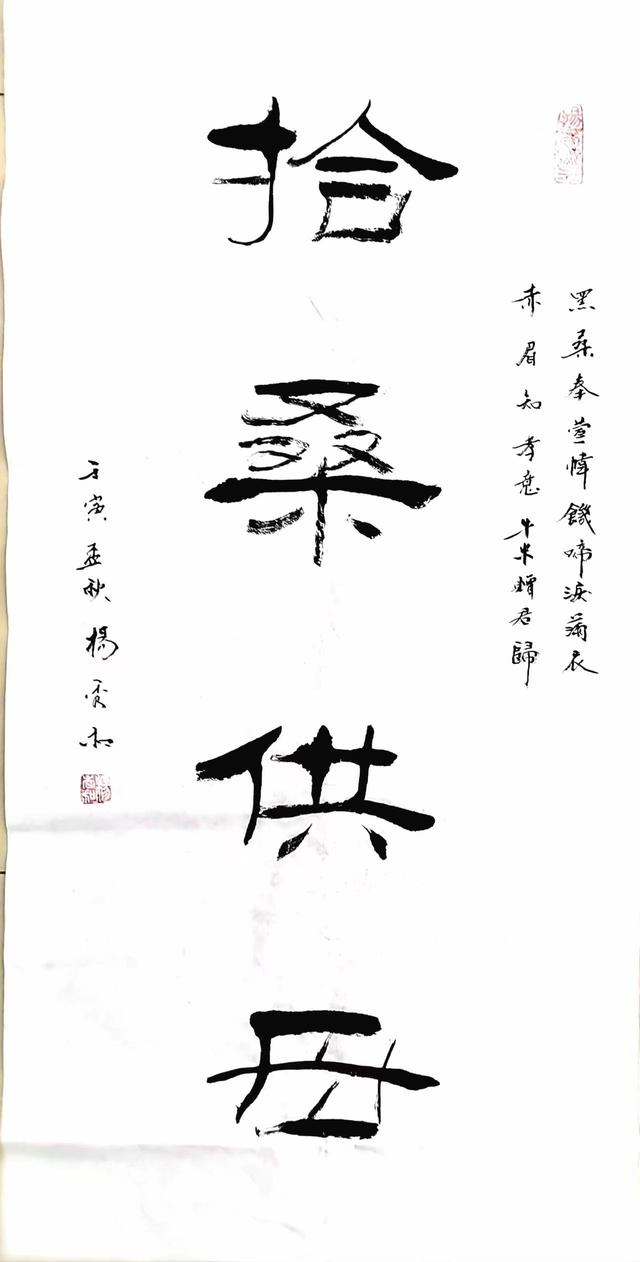 黑桑奉萱幃饑啼淚滿衣
赤眉知孝意牛米贈君歸
拾桑供母
壬寅孟秋楊